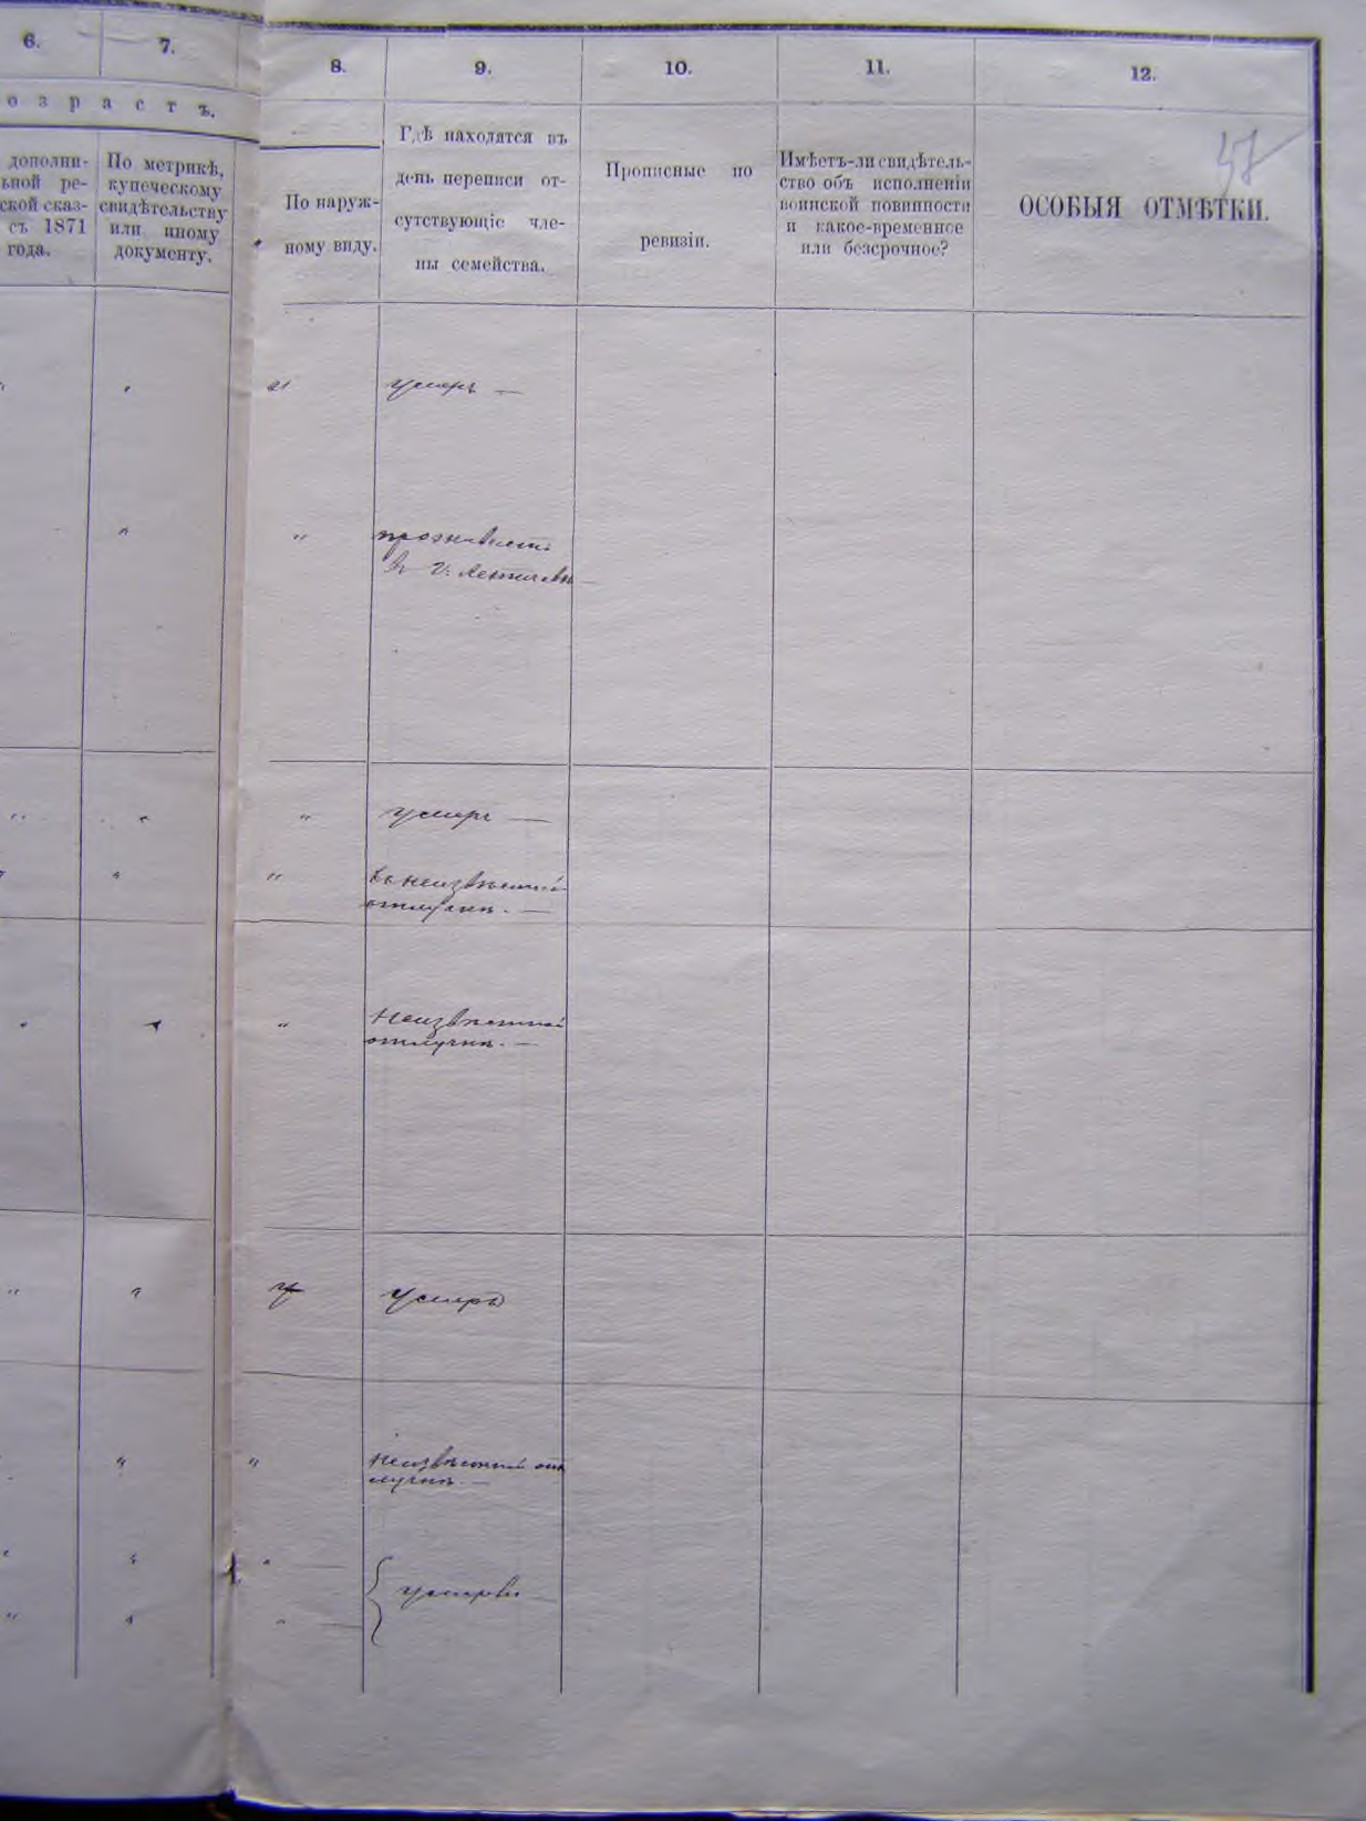 6.
7.
8.
9.
10.
11.
12.
озрастъ.
дополни-
ьной ре-
ской сказ-
съ 1871
года.
По метрикѣ,
купеческому
свидѣтельству
или иному
документу.
По наруж-
ному виду.
Гдѣ находятся въ
день переписи от-
сутствующіе чле-
ны семейства.
Прописные по
ревизіи.
Имѣетъ-ли свидѣтель-
ство объ исполненіи
воинской повинности
и какое-временное
или безсрочное?
ОСОБЫЯ ОТМѢТКИ.
37
умеръ —
проживаетъ
въ г. Летичевѣ —
умеръ —
въ неизвѣстной
отлучкѣ. —
Неизвѣстной
отлучкѣ. —
умеръ
неизвѣстной от
лучкѣ —
умерли —